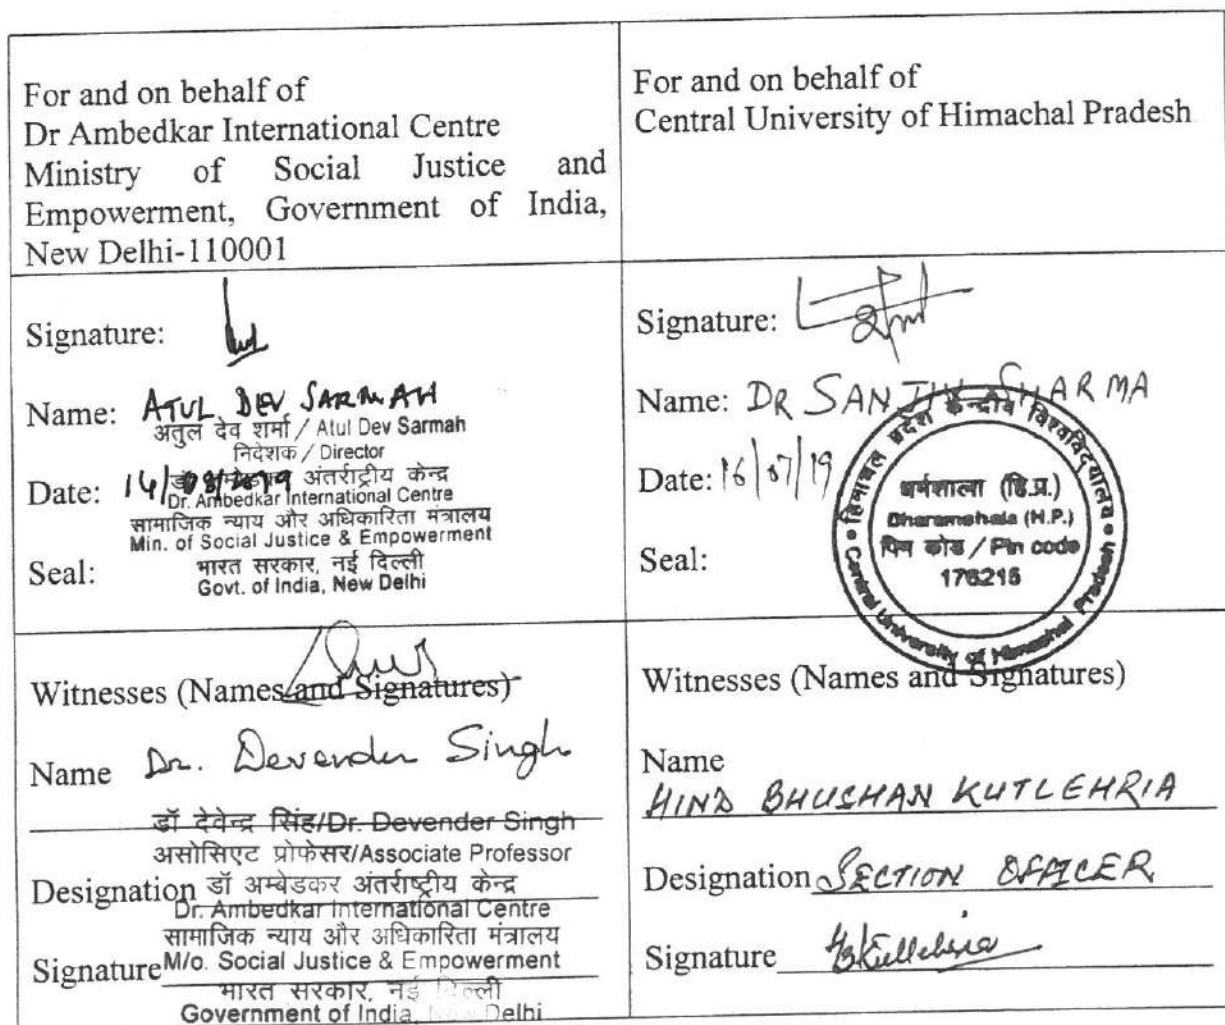 For and on behalf of
Dr Ambedkar International Centre
Ministry of Social Justice and
Empowerment, Government of India,
New Delhi-110001
For and on behalf of
Central University of Himachal Pradesh
Signature:
Name: ATUL DEV SARMAH
अतुल देव शर्मा / Atul Dev Sarmah
निदेशक / Director
Date:
अंतर्राट्रीय केन्द्र
Dr. Ambedkar International Centre
सामाजिक न्याय और अधिकारिता मंत्रालय
Min. of Social Justice & Empowerment
Seal:
भारत सरकार, नई दिल्ली
Govt. of India, New Delhi
Signature:
Name: DR SANJIV SHARMA
Date: 16/07/19
Seal:
हिमाचल प्रदेश केन्द्रीय विश्वविद्यालय
धर्मशाला (हि.प्र.)
Dharamshala (H.P.)
पिन कोड / Pin code
176215
Central University of Himachal Pradesh
Witnesses (Names and Signatures)
Name Dr. Devender Singh
डॉ देवेन्द्र सिंह/Dr. Devender Singh
असोसिएट प्रोफेसर/Associate Professor
Designation डॉ अम्बेडकर अंतर्राष्ट्रीय केन्द्र
Dr. Ambedkar International Centre
सामाजिक न्याय और अधिकारिता मंत्रालय
Signature M/o. Social Justice & Empowerment
भारत सरकार, नई दिल्ली
Government of India, New Delhi
Witnesses (Names and Signatures)
Name
HIND BHUSHAN KUTLEHRIA
Designation SECTION OFFICER
Signature HBKutlehria